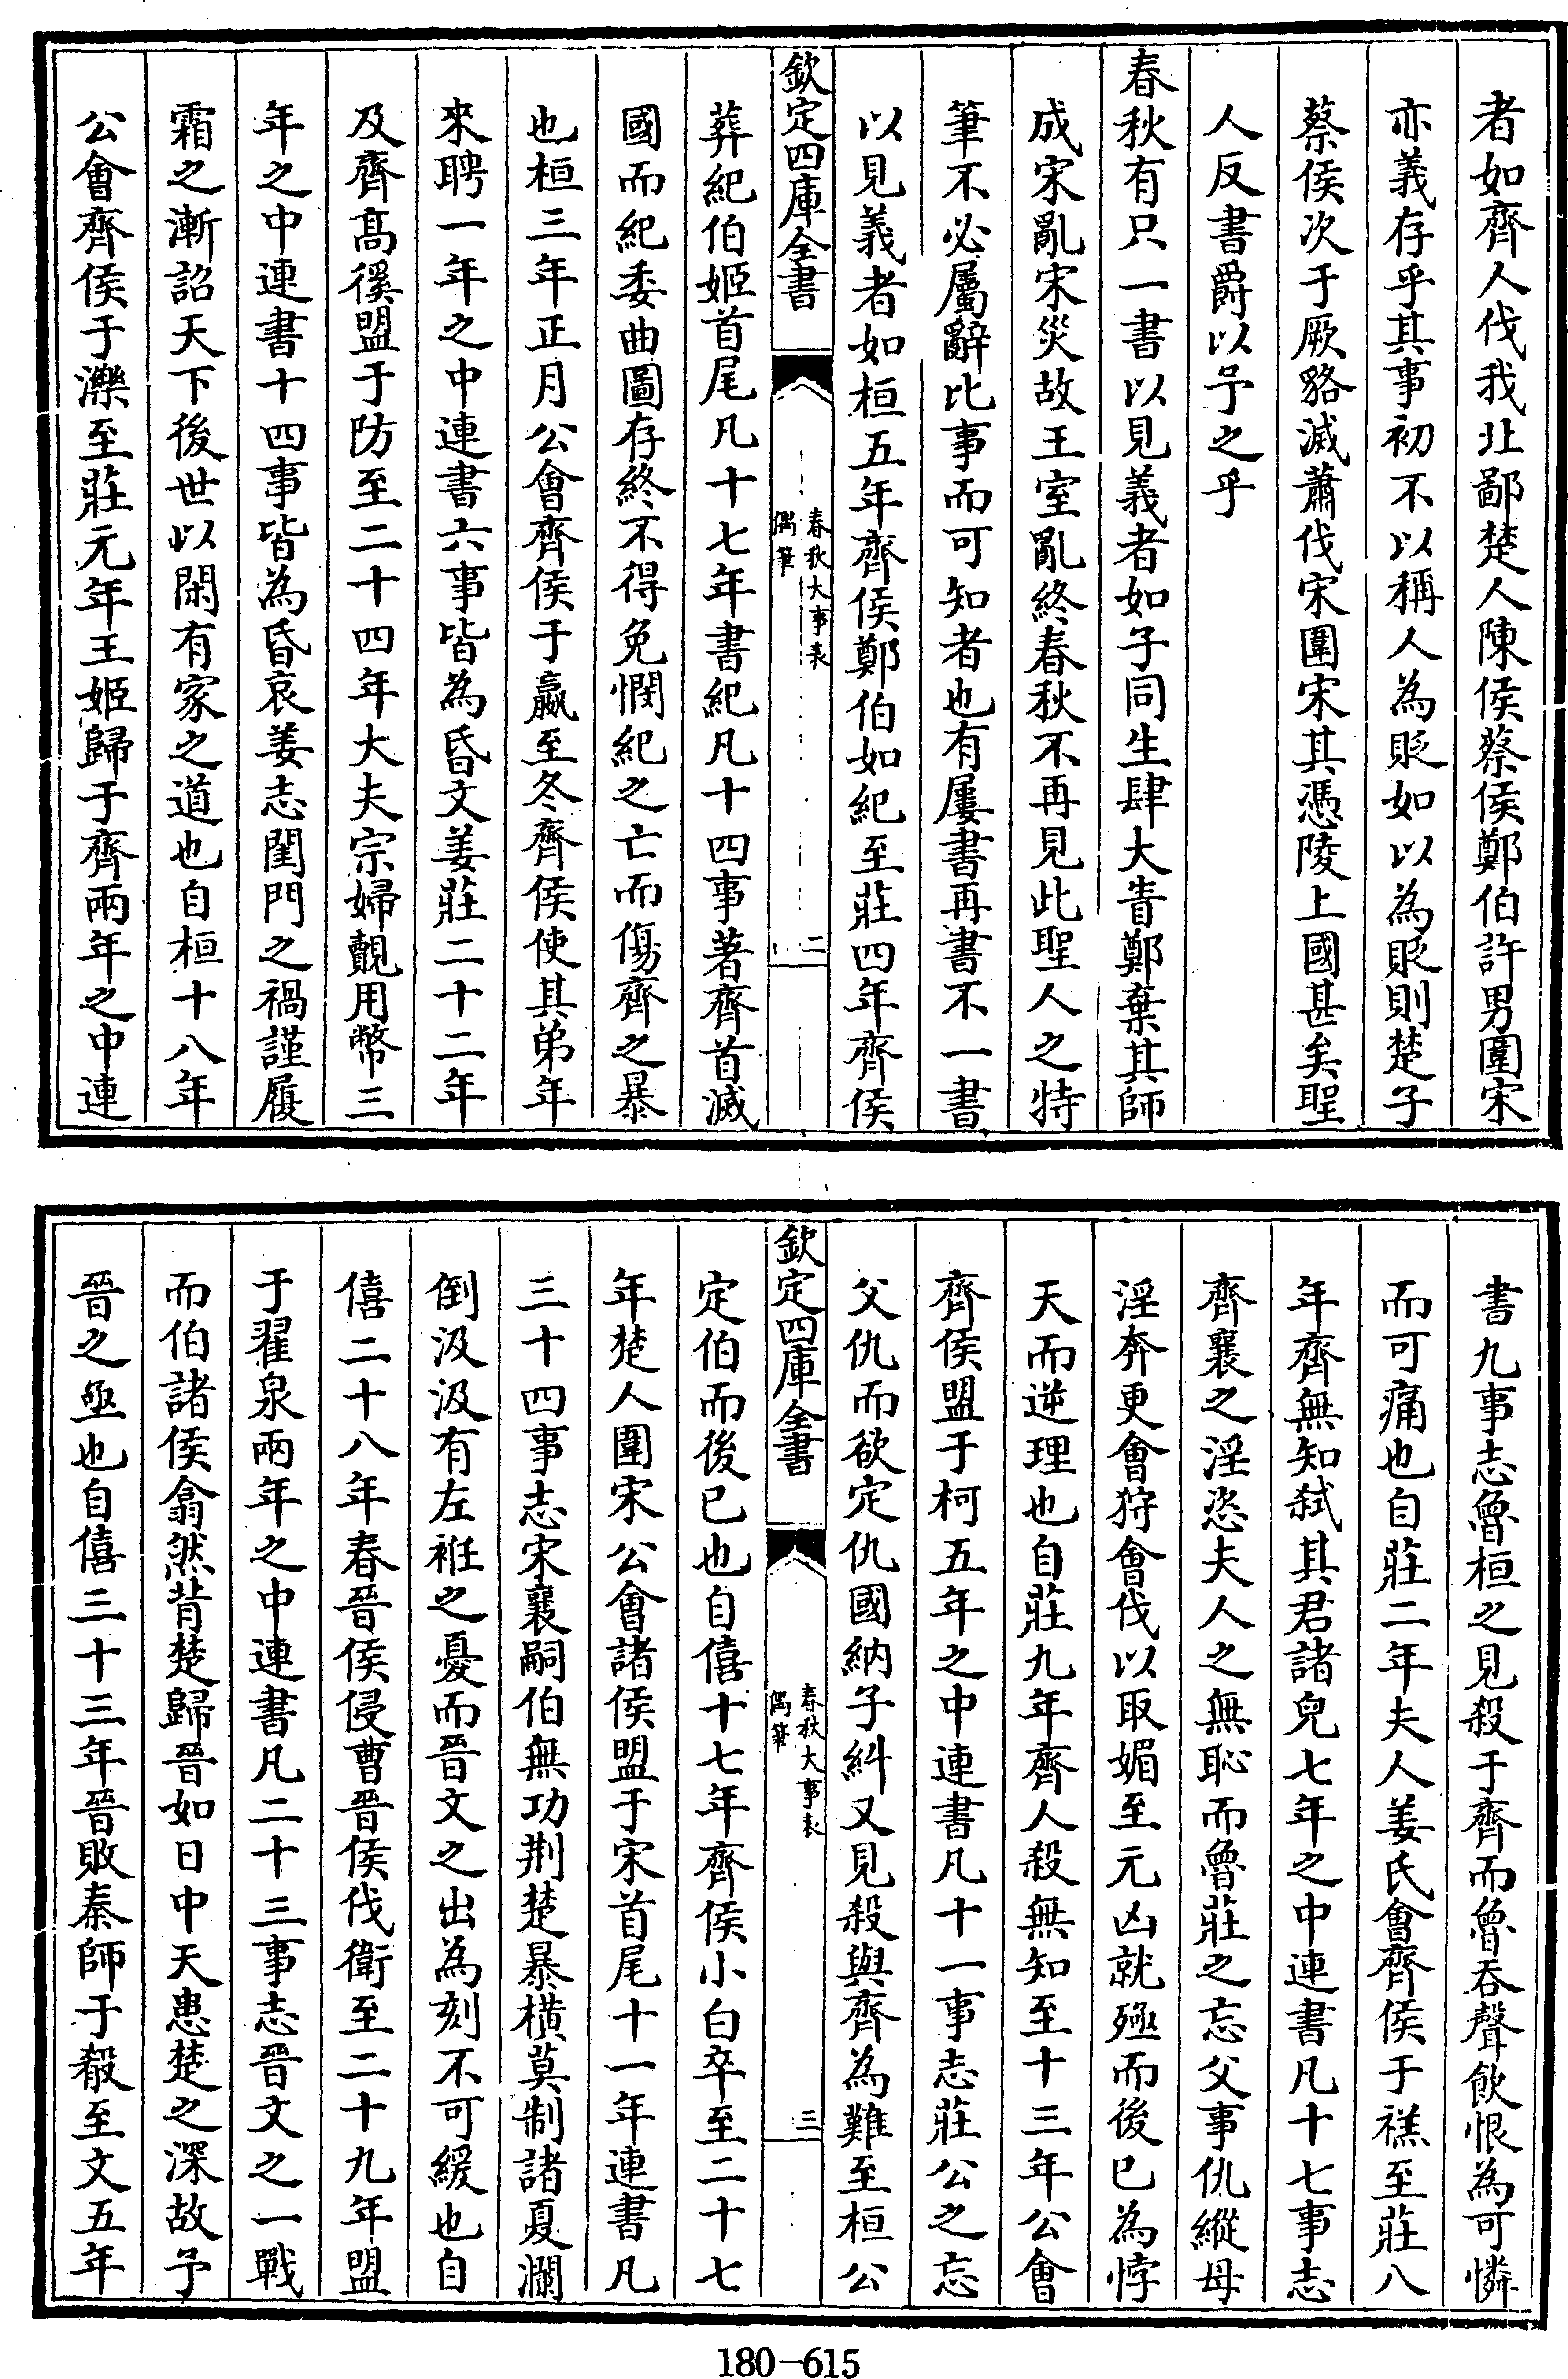 者如齊人伐我北鄙楚人陳侯蔡侯鄭伯許男圍宋
亦義存乎其事初不以稱人為貶如以為貶則楚子
蔡侯次于厥貉滅蕭伐宋圍宋其馮陵上國甚矣聖
人反書爵以予之乎
春秋有只一書以見義者如子同生肆大眚鄭棄其師
成宋亂宋災故王室亂終春秋不再見此聖人之特
筆不必屬辭比事而可知者也有屢書再書不一書
以見義者如桓五年齊侯鄭伯如紀至莊四年齊侯
欽定四庫全書
春秋大事表
偶筆
二
葬紀伯姬首尾凡十七年書紀凡十四事著齊首滅
國而紀委曲圖存終不得免憫紀之亡而傷齊之暴
也桓三年正月公會齊侯于嬴至冬齊侯使其弟年
來聘一年之中連書六事皆為昏文姜莊二十二年
及齊髙徯盟于防至二十四年大夫宗婦覿用幣三
年之中連書十四事皆為昏哀姜志閨門之禍謹履
霜之漸詔天下後世以閑有家之道也自桓十八年
公會齊侯于濼至莊元年王姬歸于齊兩年之中連
書九事志魯桓之見殺于齊而魯吞聲飲恨為可憐
而可痛也自莊二年夫人姜氏會齊侯于禚至莊八
年齊無知弑其君諸兒七年之中連書凡十七事志
齊襄之淫恣夫人之無恥而魯莊之忘父事仇縱母
淫奔更會狩會伐以取媚至元凶就殛而後已為悖
天而逆理也自莊九年齊人殺無知至十三年公會
齊侯盟于柯五年之中連書凡十一事志莊公之忘
父仇而欲定仇國納子糾又見殺與齊為難至桓公
欽定四庫全書
春秋大事表
偶筆
三
定伯而後已也自僖十七年齊侯小白卒至二十七
年楚人圍宋公會諸侯盟于宋首尾十一年連書凡
三十四事志宋襄嗣伯無功荆楚暴橫莫制諸夏瀾
倒汲汲有左袵之憂而晉文之出為刻不可緩也自
僖二十八年春晉侯侵曹晉侯伐衛至二十九年盟
于翟泉兩年之中連書凡二十三事志晉文之一戰
而伯諸侯翕然背楚歸晉如日中天患楚之深故予
晉之亟也自僖三十三年晉敗秦師于殽至文五年
180-615